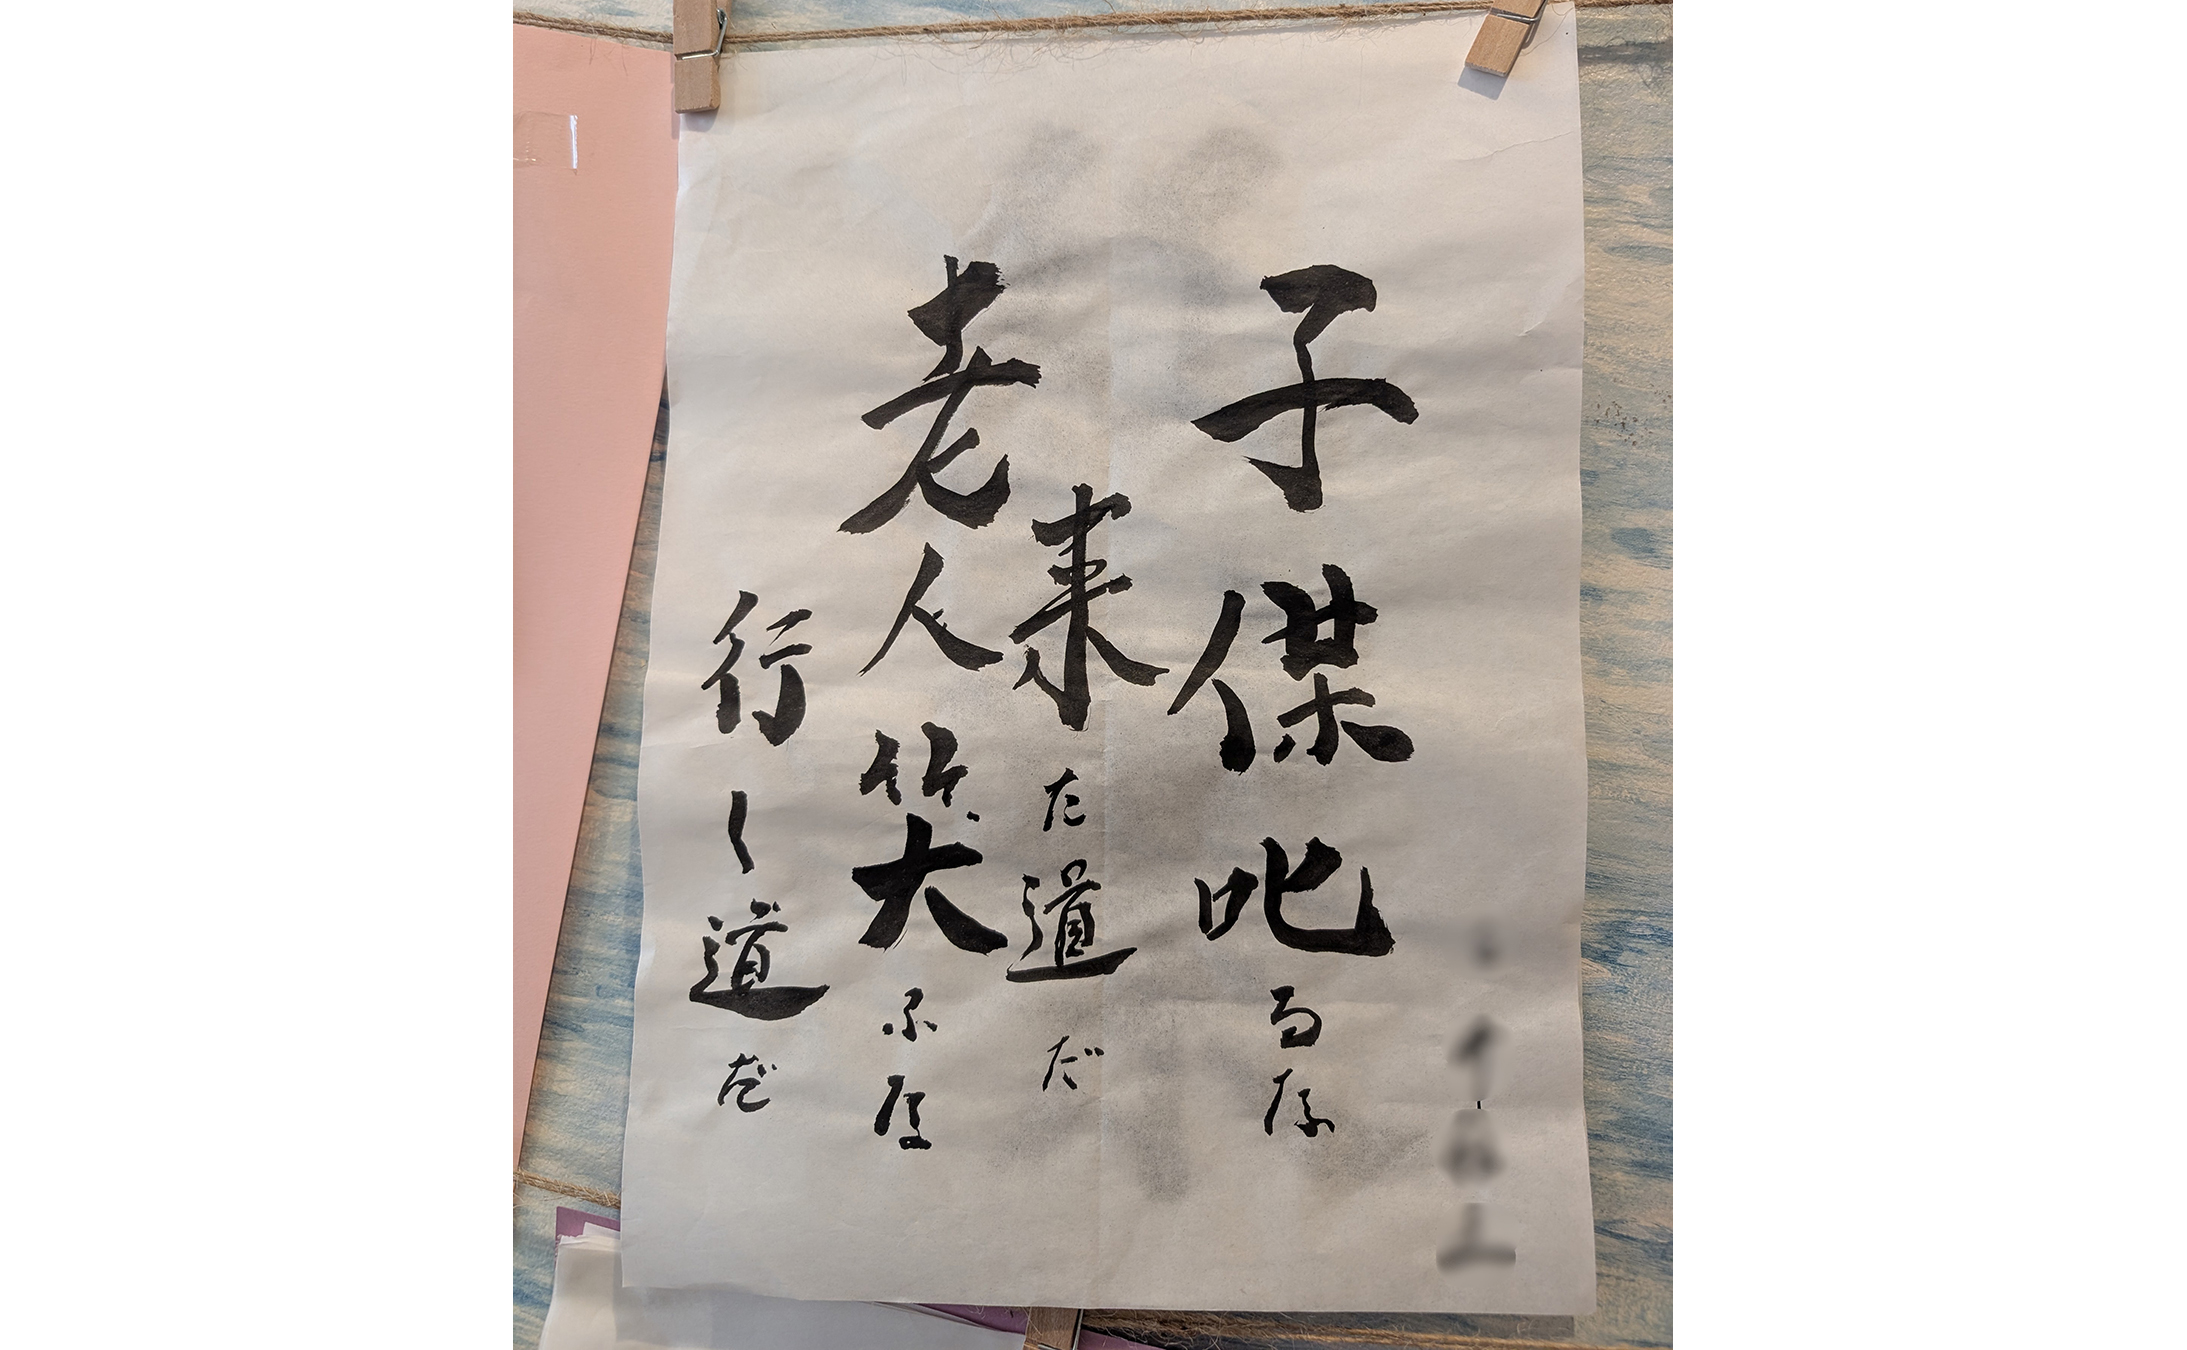 子傑叱るな
来た道だ
老人笑ふな
行く道だ